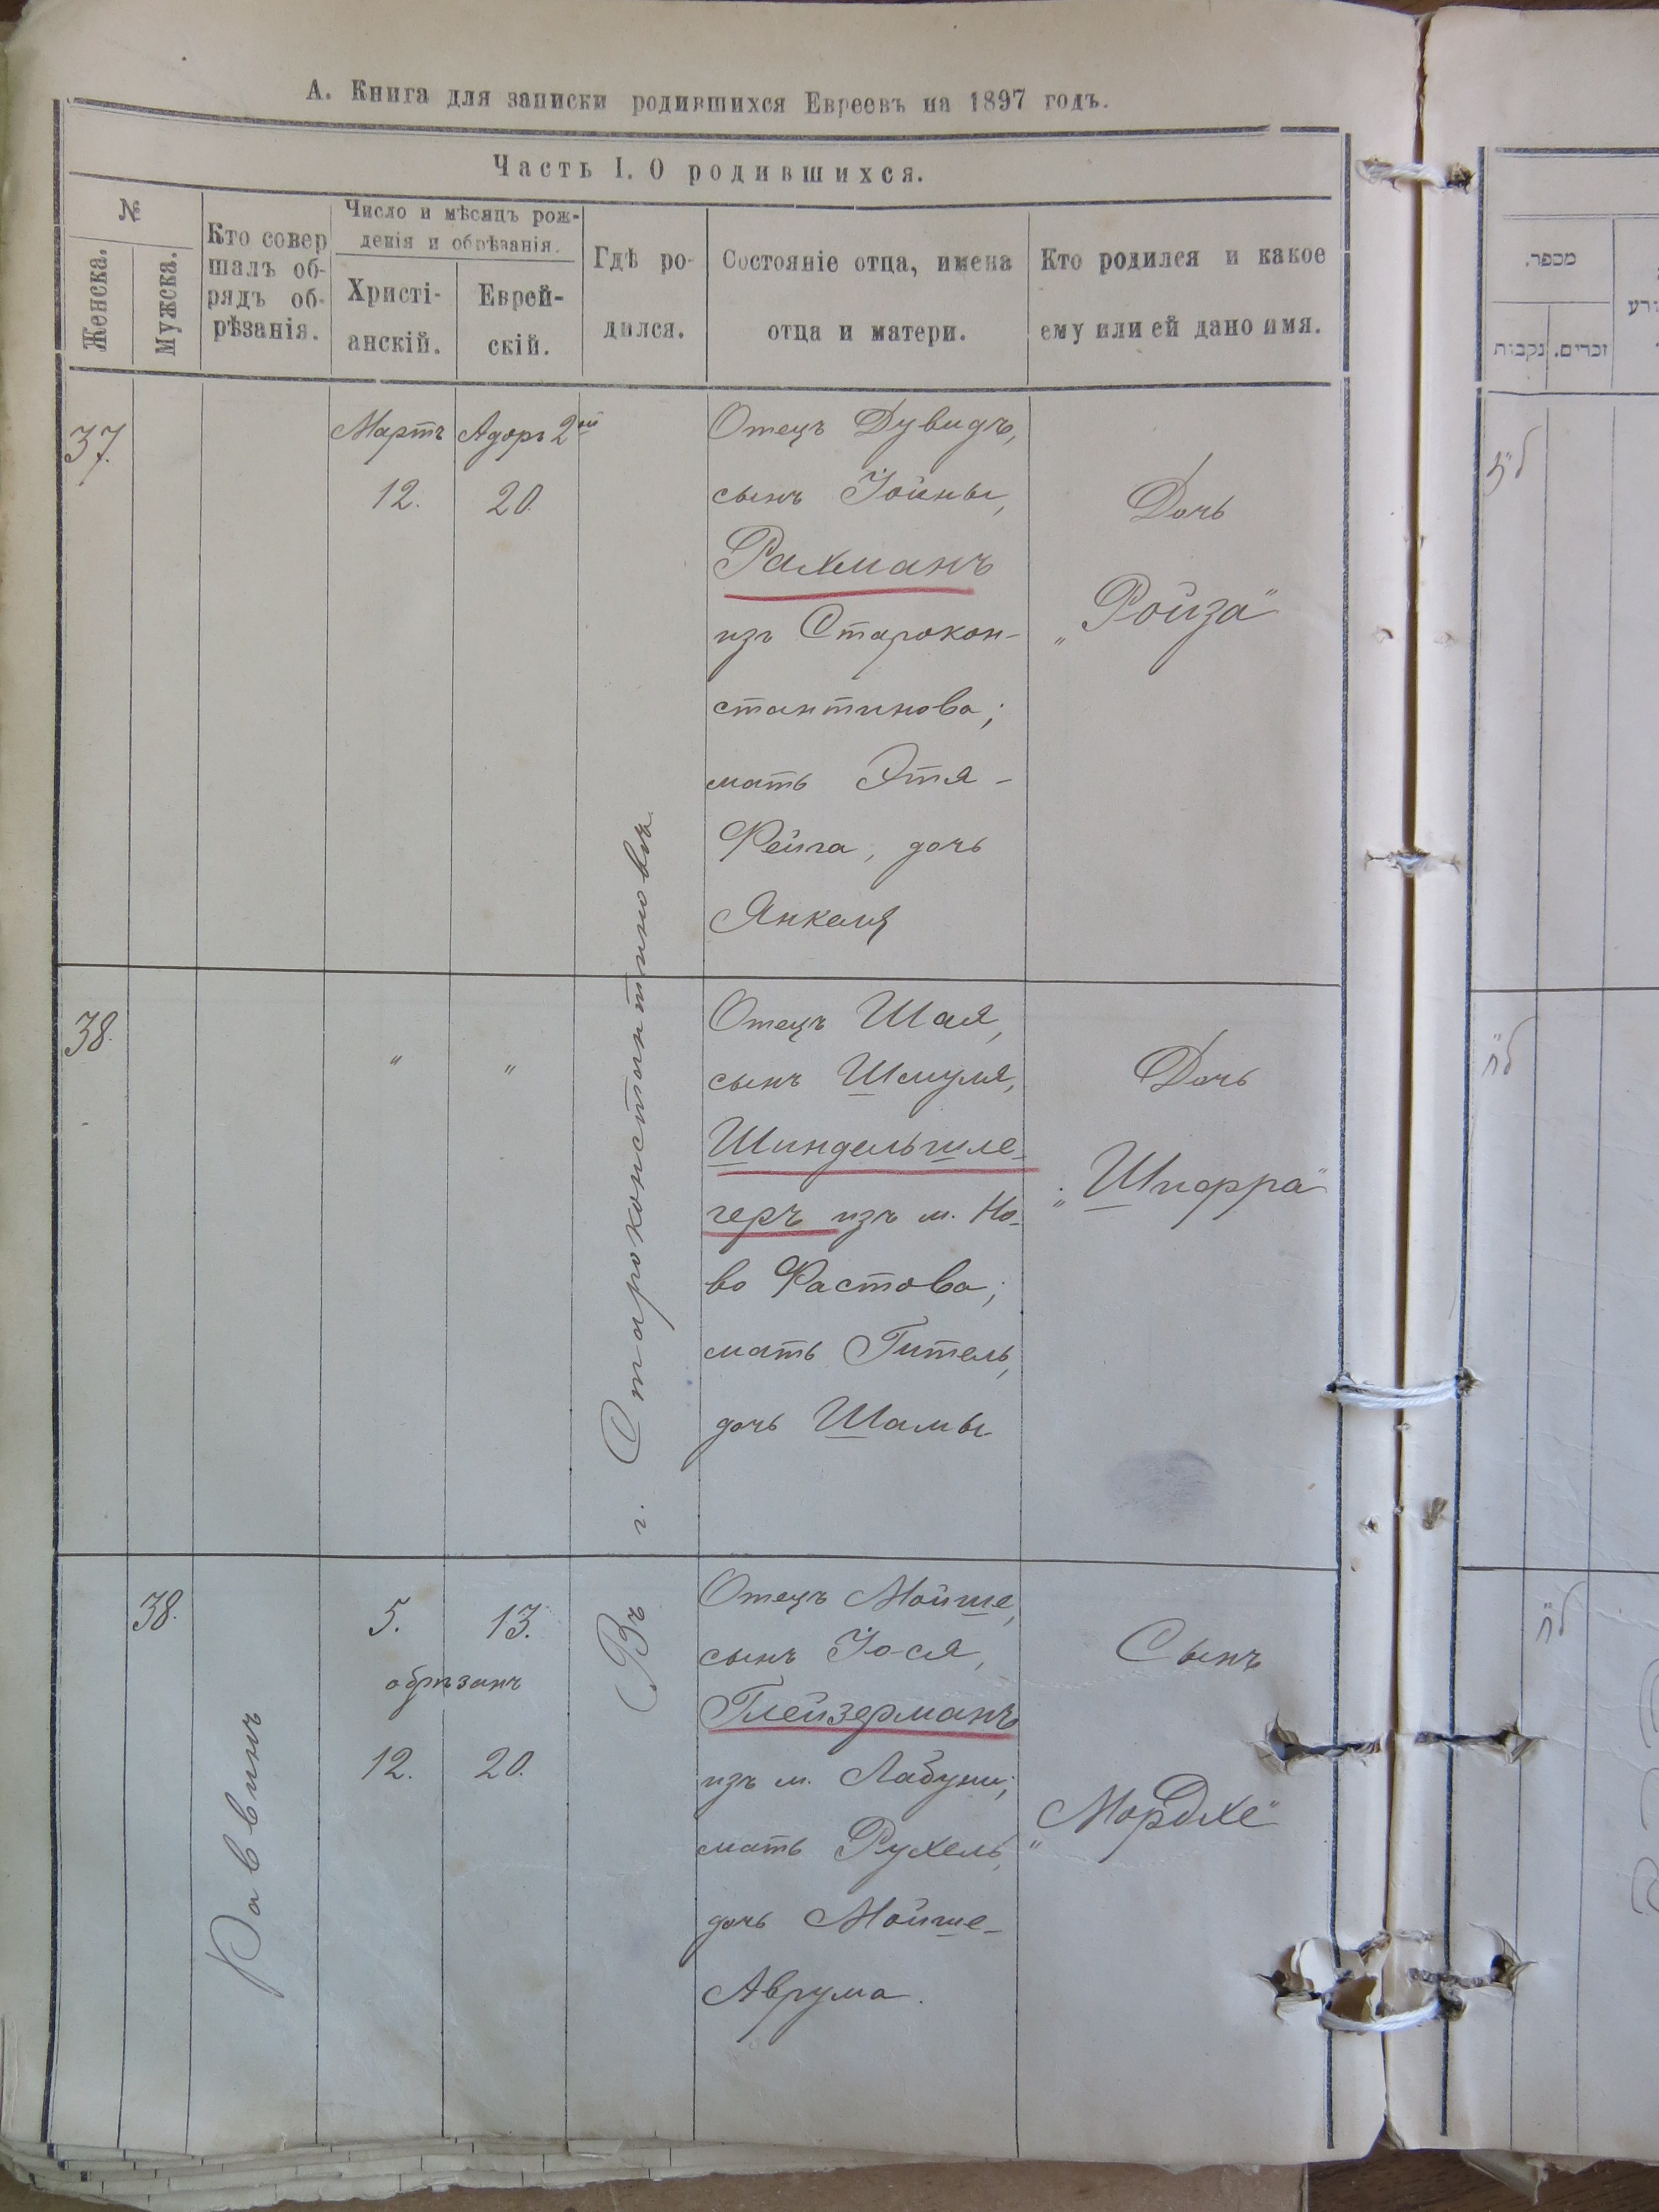 А. Книга для записки родившихся Евреевъ на 1897 годъ.
Часть I. О родившихся.
№
Женска.
Мужска.
Кто совер
шалъ об-
рядъ об-
рѣзанія.
Число и мѣсяцъ рож-
денія и обрѣзанія.
Христі-
анскій.
Еврей-
скій.
Гдѣ ро-
дился.
Состояніе отца, имена
отца и матери.
Кто родился и какое
ему или ей дано имя.
37.
Мартъ
12.
Адоръ 2ой
20.
Въ г. Староконстантиновѣ.
Отецъ Дувидъ,
сынъ Іойны,
Рахманъ
изъ Старокон-
стантинова;
мать Этя-
Фейга, дочь
Янкеля
Дочь
„Ройза"
38.
"
"
Отецъ Шая,
сынъ Шмуля,
Шиндельшле-
геръ изъ м. Но-
во Фастова;
мать Гитель,
дочь Шамы
Дочь
„Шифра"
38.
Раввинъ
5.
13.
обрѣзанъ
12.
20.
Отецъ Мойше,
сынъ Іося,
Глейзерманъ
изъ м. Лабуни;
мать Рухель,
дочь Мойше-
Аврума.
Сынъ
„Мордхе"
מספר.
זכרים.
נקבות